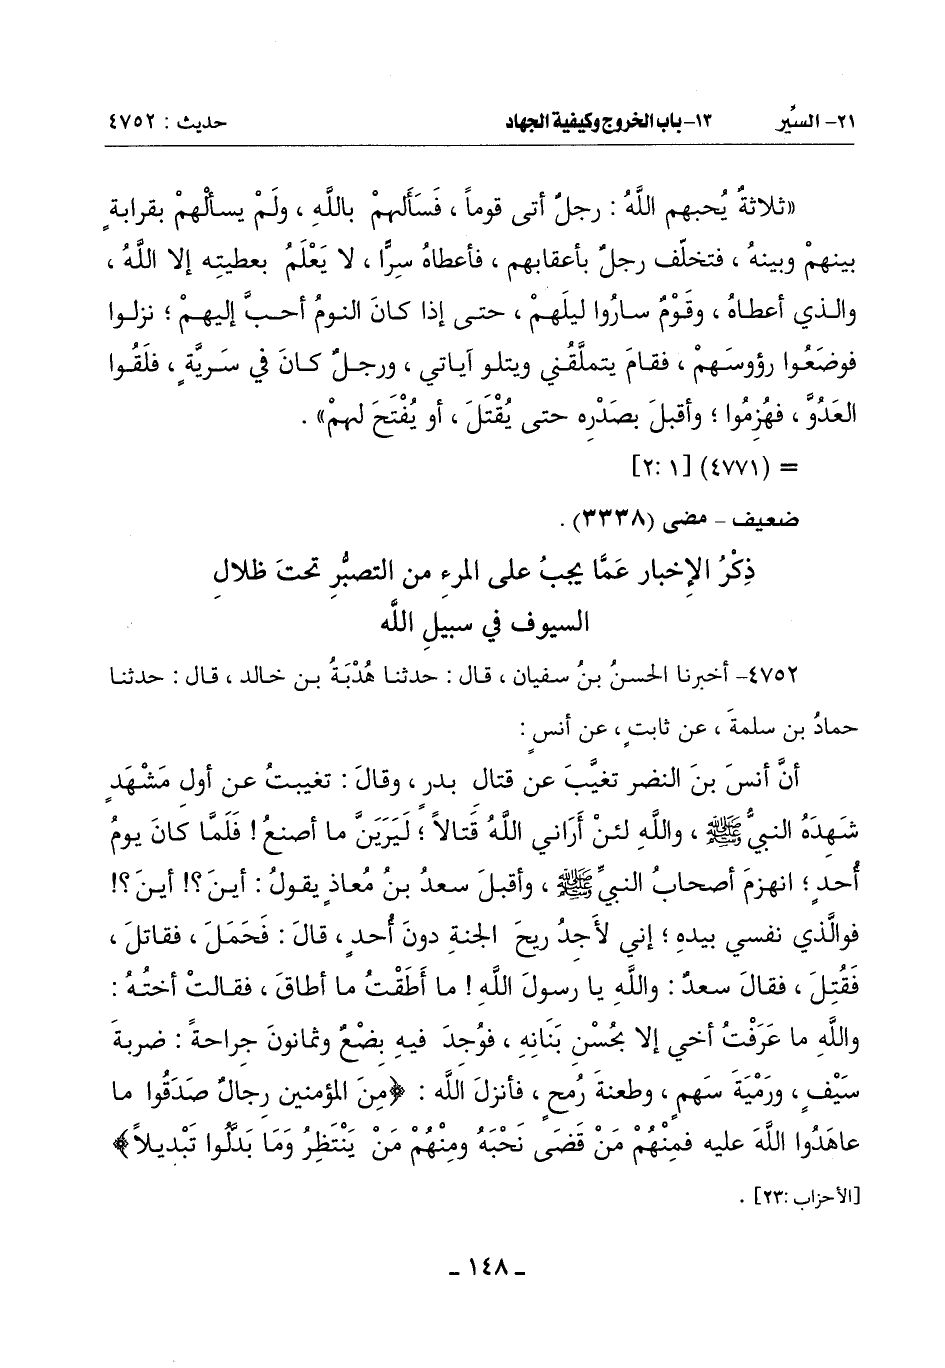 ٢١- السِّير ١٣- باب الخروج وكيفية الجهاد حديث : ٤٧٥٢
«ثلاثةٌ يُحبهم اللَّهُ : رجلٌ أتى قوماً ، فَسَأَلهمْ باللَّهِ ، ولَمْ يسألْهمْ بقرابةٍ
بينهمْ وبينهُ ، فتخلَّف رجلٌ بأعقابهم ، فأعطاهُ سِرًّا ، لا يَعْلَمُ بعطيتِه إلا اللَّهُ ،
والذي أعطاهُ ، وقَوْمٌ سارُوا ليلَهمْ ، حتى إذا كانَ النومُ أحبَّ إليهمْ ؛ نزلوا
فوضَعُوا رؤوسَهمْ ، فقامَ يتملَّقُني ويتلو آياتي ، ورجلٌ كانَ في سَريَّةٍ ، فلَقُوا
العَدُوَّ ، فهُزِمُوا ؛ وأقبلَ بصَدْرِه حتى يُقْتَلَ ، أو يُفْتَحَ لهمْ» .
= (٤٧٧١) [١ :٢]
ضعيف - مضى (٣٣٣٨) .
ذِكْرُ الإخبار عَمَّا يجبُ على المرءِ من التصبُّرِ تحتَ ظلالِ
السيوف في سبيلِ اللَّه
٤٧٥٢- أخبرنا الحسنُ بنُ سفيان ، قال : حدثنا هُدْبَةُ بن خالد ، قال : حدثنا
حمادُ بن سلمةَ ، عن ثابتٍ ، عن أنسٍ :
أنَّ أنسَ بنَ النضرِ تغيَّبَ عن قتالِ بدرٍ ، وقالَ : تغيبتُ عن أولِ مَشْهَدٍ
شهدَهُ النبيُّ ﷺ ، واللَّهِ لئنْ أَرَاني اللَّهُ قتالاً ؛ لَيَرَيَنَّ ما أصنعُ ! فَلَمَّا كانَ يومُ
أُحدٍ ؛ انهزمَ أصحابُ النبيِّ ﷺ ، وأقبلَ سعدُ بنُ مُعاذٍ يقولُ : أينَ ؟! أينَ ؟!
فوالَّذي نفسي بيدهِ ؛ إني لأَجِدُ ريحَ الجنةِ دونَ أُحدٍ ، قالَ : فَحَمَلَ ، فقاتلَ ،
فَقُتِلَ ، فقالَ سعدٌ : واللَّهِ يا رسولَ اللَّهِ ! ما أَطَقْتُ ما أطاقَ ، فقالتْ أختُهُ :
واللَّهِ ما عَرَفْتُ أخي إلا بحُسْنِ بَنَانِه ، فوُجدَ فيهِ بِضْعٌ وثمانونَ جراحةً : ضربةَ
سَيْفٍ ، ورَمْيَةَ سَهمٍ ، وطعنةَ رُمحٍ ، فأنزلَ اللَّه : ﴿مِنَ المؤمنينَ رجالٌ صَدَقُوا ما
عاهَدُوا اللَّهَ عليه فمِنْهُمْ مَنْ قَضَى نَحْبَهُ ومِنْهُمْ مَنْ يَنْتَظِرُ وَمَا بَدَّلُوا تَبْديلاً﴾
[الأحزاب :٢٣] .
ـ ١٤٨ ـ